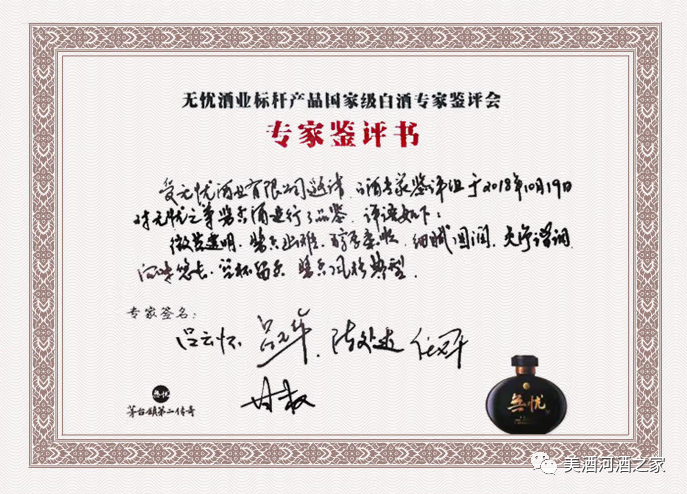 无忧酒业标杆产品国家级白酒专家鉴评会
专家鉴评书
受无忧酒业有限公司邀请,白酒专家鉴评组于2018年10月19日
对无忧之尊酱香酒进行了品鉴,评语如下:
微黄透明,酱香幽雅,醇厚柔和,细腻圆润,香味谐调,
回味悠长,空杯留香,酱香风格典型。
专家签名:
吕云怀
無忧
茅台鎮第二传奇
無忧
美酒河酒之家